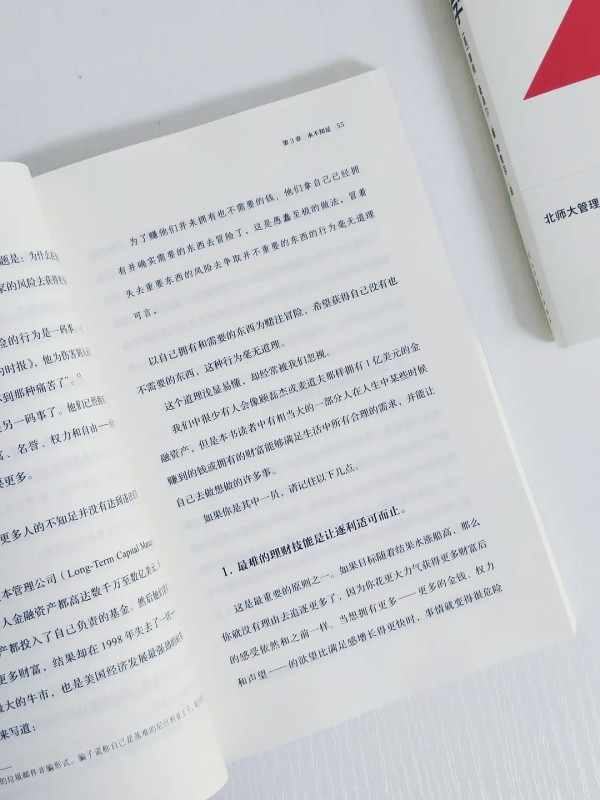 题是：为什么
家的风险去获得
险的行为是一码事
的时报》，他为伤害别人
不到那种痛苦了”。
是另一码事了。他们已经
富、名誉、权力和自由
要更多。
更多人的不知足并没有达到
本管理公司（Long-Term Capital Mana
人金融资产都高达数千万至数亿美元
产都投入了自己负责的基金。然后他们
更多财富，结果却在 1998 年失去了一切
最大的牛市，也是美国经济发展最强劲的
来写道：
的垃圾邮件诈骗形式。骗子谎称自己是落难的尼日利亚王子，
第 3 章 永不知足 55
为了赚他们并未拥有也不需要的钱，他们拿自己已经拥
有并确实需要的东西去冒险了，这是愚蠢至极的做法。冒着
失去重要东西的风险去争取并不重要的东西的行为毫无道理
可言。
以自己拥有和需要的东西为赌注冒险，希望获得自己没有也
不需要的东西，这种行为毫无道理。
这个道理浅显易懂，却经常被我们忽视。
我们中很少有人会像顾磊杰或麦道夫那样拥有 1 亿美元的金
融资产，但是本书读者中有相当大的一部分人在人生中某些时候
赚到的钱或拥有的财富能够满足生活中所有合理的需求，并能让
自己去做想做的许多事。
如果你是其中一员，请记住以下几点。
1. 最难的理财技能是让逐利适可而止。
这是最重要的原则之一。如果目标随着结果水涨船高，那么
你就没有理由去追逐更多了，因为你花更大力气获得更多财富后
的感受依然和之前一样。当想拥有更多——更多的金钱、权力
和声望——的欲望比满足感增长得更快时，事情就变得很危险
北师大管理